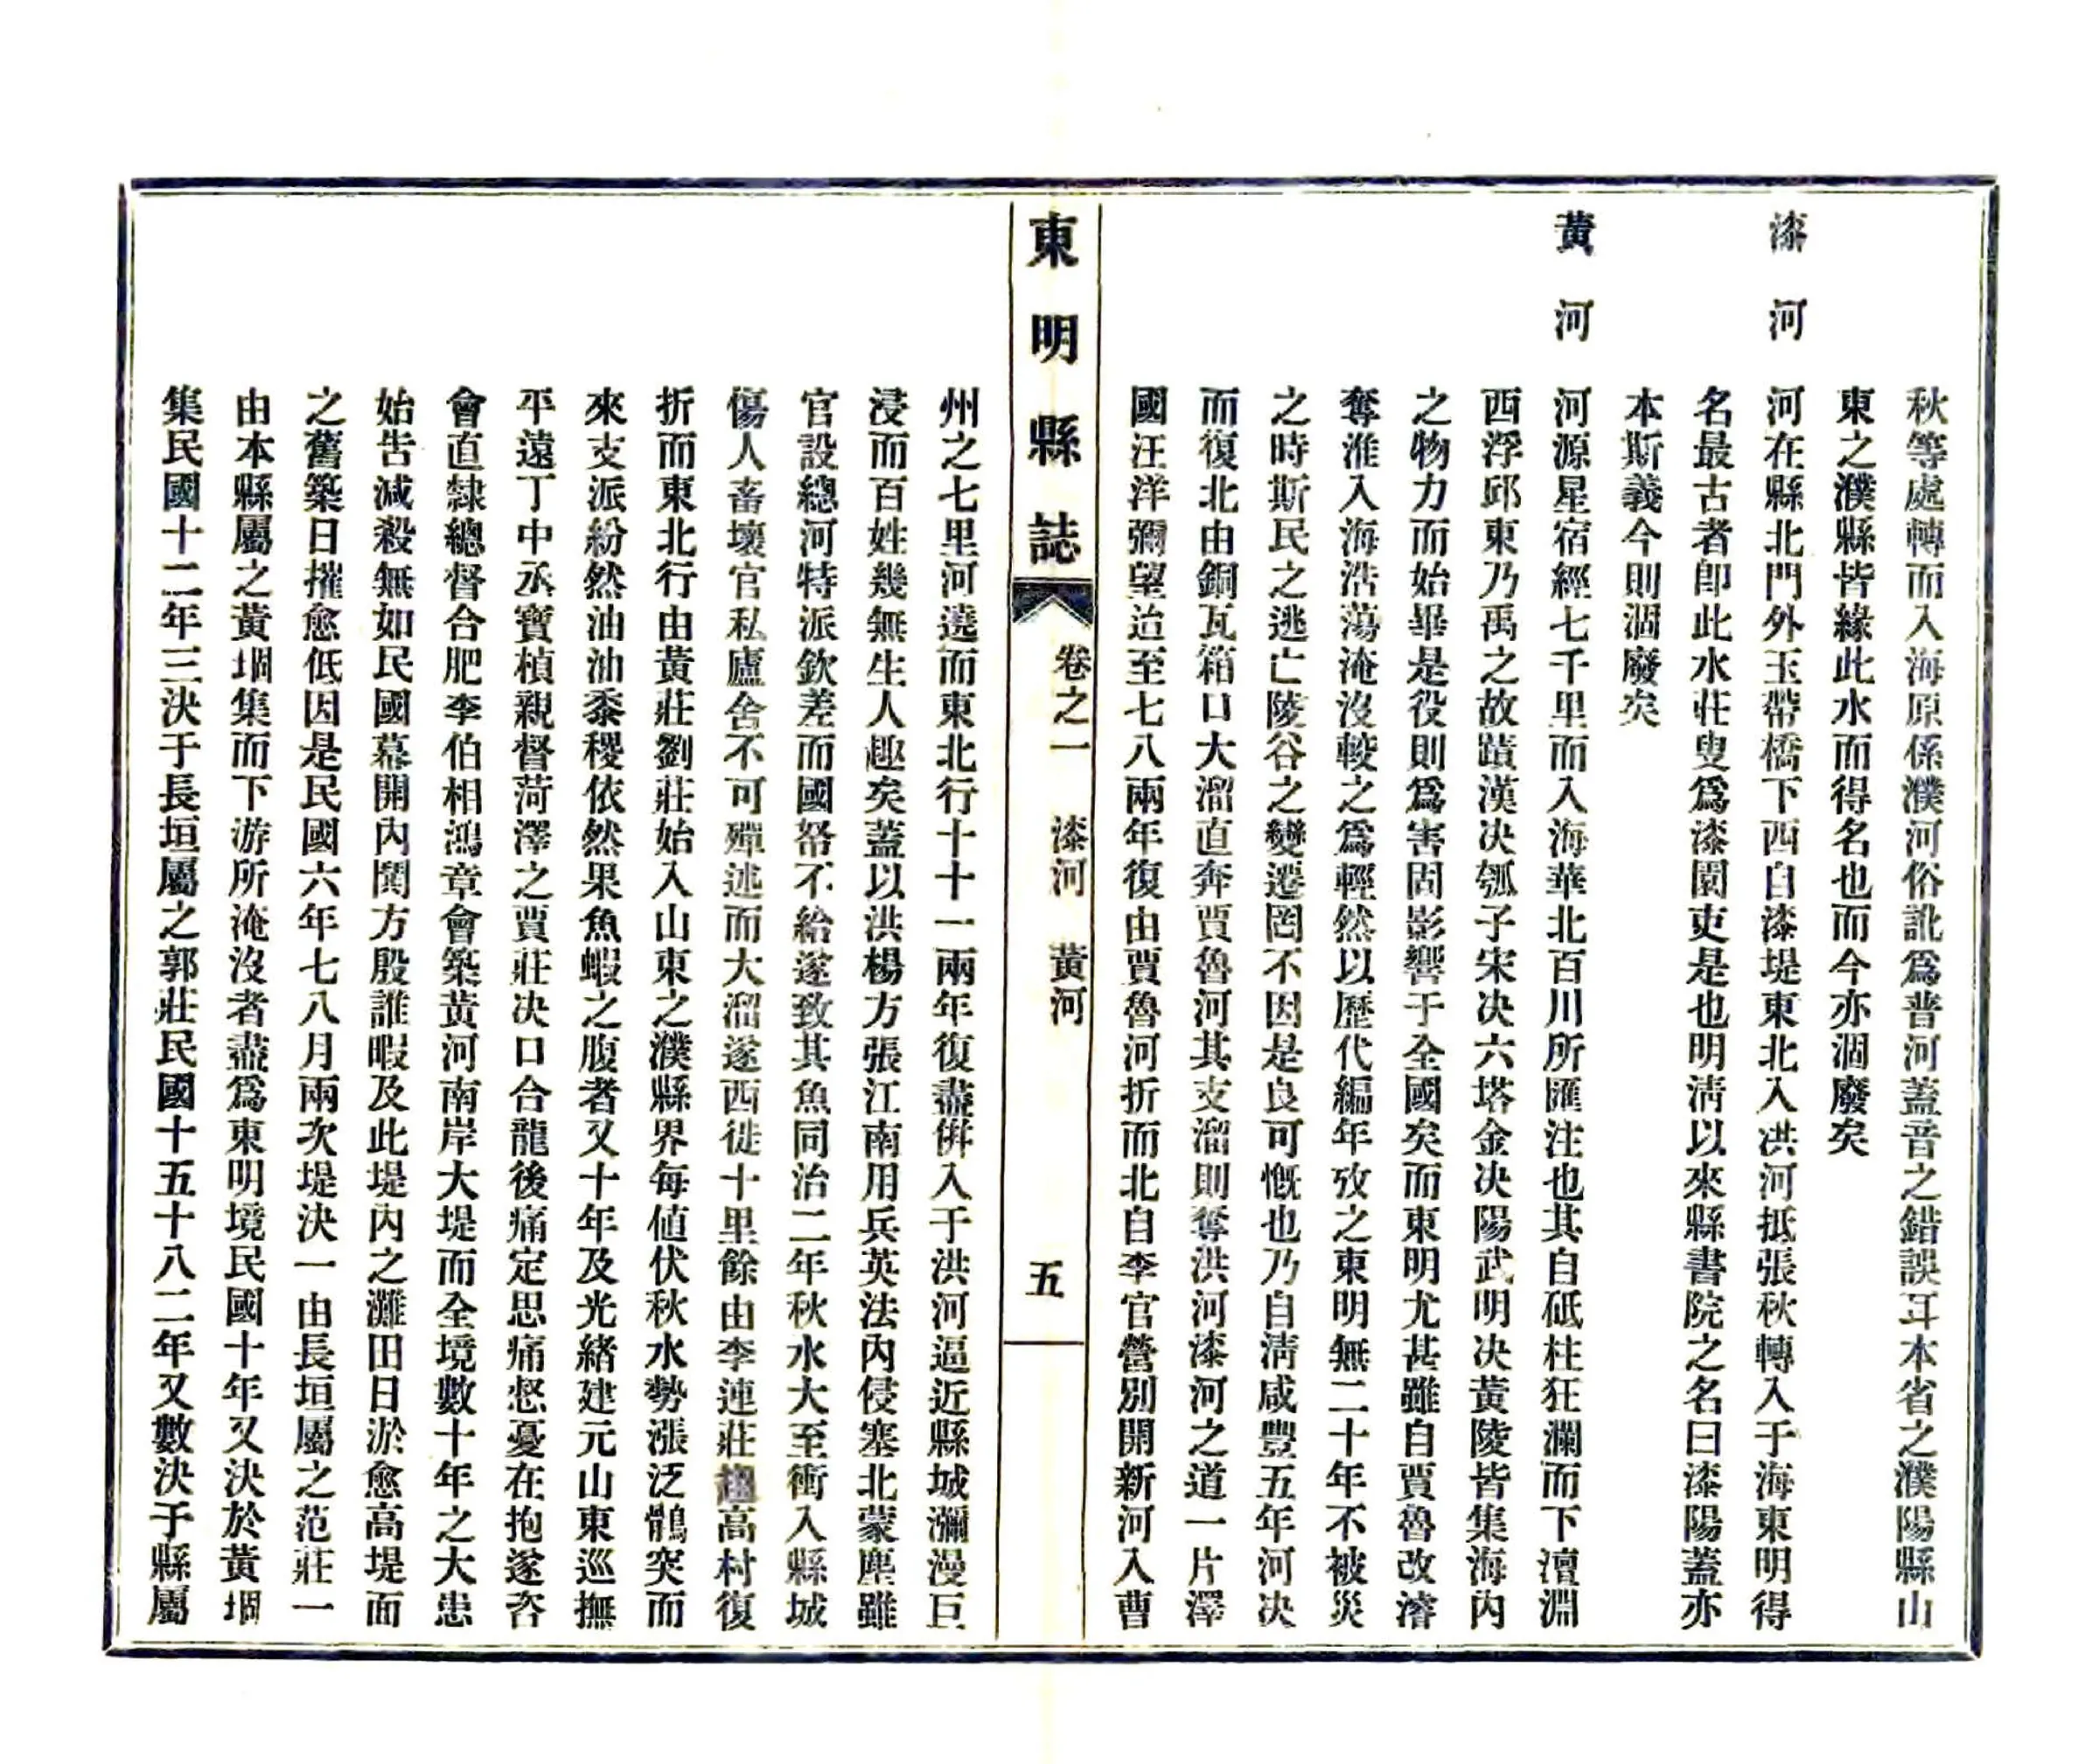 秋等處轉而入海原係濮河俗訛爲普河蓋音之錯誤耳本省之濮陽縣山
東之濮縣皆緣此水而得名也而今亦涸廢矣
漆河
河在縣北門外玉帶橋下西自漆堤東北入洪河抵張秋轉入于海東明得
名最古者卽此水莊叟爲漆園吏是也明清以來縣書院之名曰漆陽蓋亦
本斯義今則涸廢矣
黃河
河源星宿經七千里而入海華北百川所匯注也其自砥柱狂瀾而下澶淵
西浮邱東乃禹之故蹟漢决瓠子宋决六塔金决陽武明决黃陵皆集海內
之物力而始畢是役則爲害固影響于全國矣而東明尤甚雖自賈魯改濬
奪淮入海浩蕩淹沒較之爲輕然以歷代編年攷之東明無二十年不被災
之時斯民之逃亡陵谷之變遷罔不因是良可慨也乃自清咸豐五年河决
而復北由銅瓦箱口大溜直奔賈魯河其支溜則奪洪河漆河之道一片澤
國汪洋彌望迨至七八兩年復由賈魯河折而北自李官營別開新河入曹
東明縣誌
卷之一 漆河 黃河
五
州之七里河遶而東北行十十一兩年復盡併入于洪河逼近縣城瀰漫巨
浸而百姓幾無生人趣矣蓋以洪楊方張江南用兵英法內侵塞北蒙塵雖
官設總河特派欽差而國帑不給遂致其魚同治二年秋水大至衝入縣城
傷人畜壞官私廬舍不可殫述而大溜遂西徙十里餘由李連莊高村復
折而東北行由黃莊劉莊始入山東之濮縣界每値伏秋水勢漲泛鶻突而
來支派紛然油油黍稷依然果魚蝦之腹者又十年及光緒建元山東巡撫
平遠丁中丞寶楨親督菏澤之賈莊决口合龍後痛定思痛惄憂在抱遂咨
會直隸總督合肥李伯相鴻章會築黃河南岸大堤而全境數十年之大患
始吿減殺無如民國幕開內鬨方殷誰暇及此堤內之灘田日淤愈高堤面
之舊築日摧愈低因是民國六年七八月兩次堤決一由長垣屬之范莊一
由本縣屬之黃堌集而下游所淹沒者盡爲東明境民國十年又決於黃堌
集民國十二年三決于長垣屬之郭莊民國十五十八二年又數決于縣屬